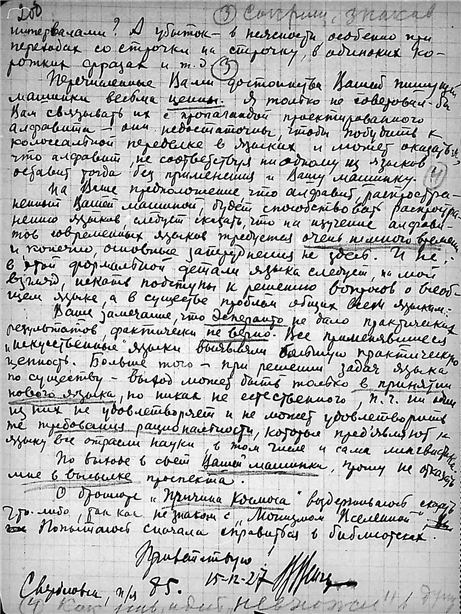 200 (3) Сокращ. знаков
интервалами? А убыток - в неясности особенно при
переходах со строчки на строчку, в одиноких ко-
ротких фразах и т.д. (3)
Перечисленные Вами достоинства Вашей пишущей
машинки весьма ценны. Я только не советовал бы
Вам связывать их с пропагандой проектированного
алфавита - они недостаточны, чтобы побудить к
колоссальной переделке в языках и может оказаться,
что алфавит, не соответствуя ни одному из языков
оставит тогда без применения и Вашу машинку. (4)
На Ваше предположение что алфавит, распростра-
ненный Вашей машинкой будет способствовать распростра-
нению языков следует сказать, что на изучение алфави-
тов современных языков требуется очень немного времени
и конечно основные затруднения не здесь. И не
в этой формальной детали языка следует, на мой
взгляд, искать подступы к решению вопросов о всеоб-
щем языке, а в существе проблем общих всем языкам.
Ваше замечание, что Эсперанто не дало практических
результатов фактически не верно. Все применявшиеся
"искусственные" языки выявляли большую практическую
ценность. Больше того - при решении задач языка
по существу - выход может быть только в принятии
нового языка, но никак не естественного, п.ч. ни один
из них не удовлетворяет и не может удовлетворить
те требования рациональности, которые предъявляют к
языку все отрасли науки в том числе и сама лингвистика.
По выходе в свет Вашей машинки, прошу не отказать
мне в высылке проспекта.
О брошюре "Причина Космоса" воздерживаюсь сказать
что-либо, так как не знаком с "Монизмом Вселенной"
Попытаюсь сначала справиться в библиотеках.
Приветствую
Свердловск, п/я 85. 15-12-27